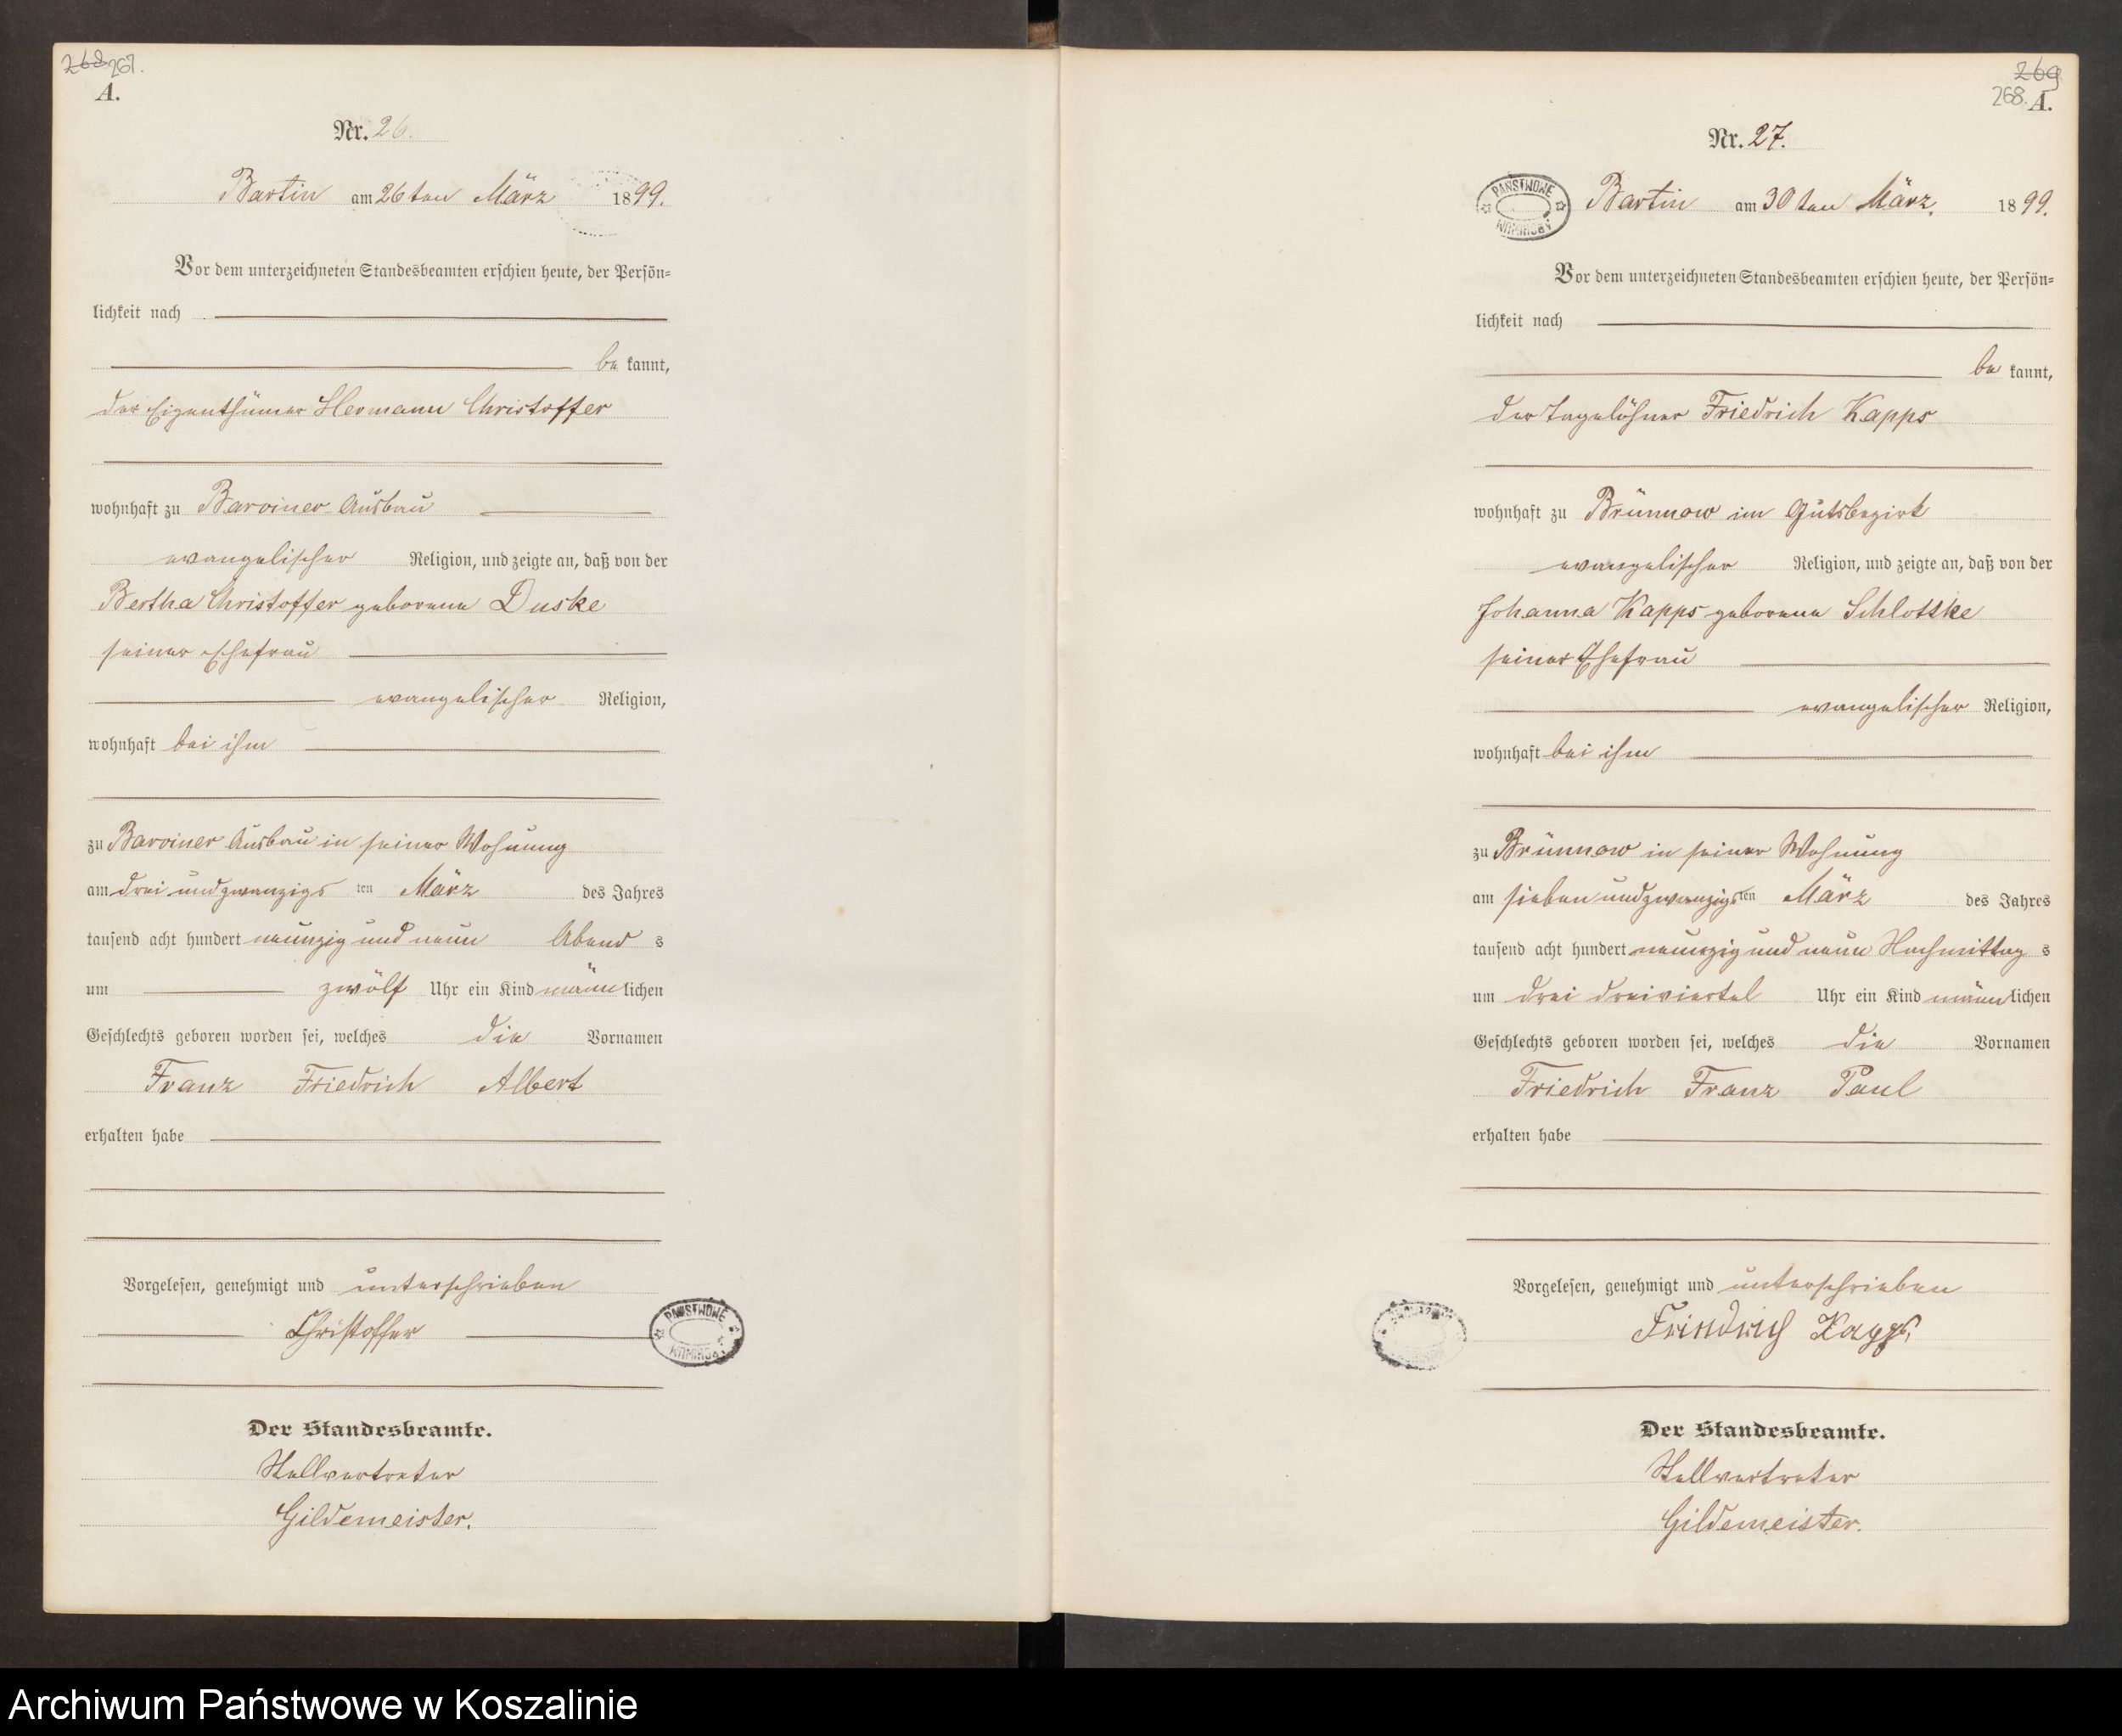 268 267.
A.
Nr. 26.
Bartin am 26ten März 1899.
Vor dem unterzeichneten Standesbeamten erschien heute, der Persön=
lichkeit nach
be kannt,
der Eigenthümer Hermann Christoffer
wohnhaft zu Barviner Ausbau
evangelischer Religion, und zeigte an, daß von der
Bertha Christoffer geborene Duske
seiner Ehefrau
evangelischer Religion,
wohnhaft bei ihm
zu Barviner Ausbau in seiner Wohnung
am drei und zwanzigs ten März des Jahres
tausend acht hundert neunzig und neun Abend s
um zwölf Uhr ein Kind männ lichen
Geschlechts geboren worden sei, welches die Vornamen
Franz Friedrich Albert
erhalten habe
Vorgelesen, genehmigt und unterschrieben
Christoffer
PAŃSTWOWE
ARCHIWUM
Der Standesbeamte.
Stellvertreter
Gildemeister.
269
268. A.
Nr. 27.
PAŃSTWOWE
ARCHIWUM
Bartin am 30ten März. 1899.
Vor dem unterzeichneten Standesbeamten erschien heute, der Persön=
lichkeit nach
be kannt,
der Tagelöhner Friedrich Kapps
wohnhaft zu Brünnow im Gutsbezirk
evangelischer Religion, und zeigte an, daß von der
Johanna Kapps geborene Schlottke
seiner Ehefrau
evangelischer Religion,
wohnhaft bei ihm
zu Brünnow in seiner Wohnung
am sieben und zwanzigs ten März des Jahres
tausend acht hundert neunzig und neun Nachmittag s
um drei dreiviertel Uhr ein Kind männ lichen
Geschlechts geboren worden sei, welches die Vornamen
Friedrich Franz Paul
erhalten habe
Vorgelesen, genehmigt und unterschrieben
Friedrich Kapps,
Der Standesbeamte.
Stellvertreter
Gildemeister.
Archiwum Państwowe w Koszalinie